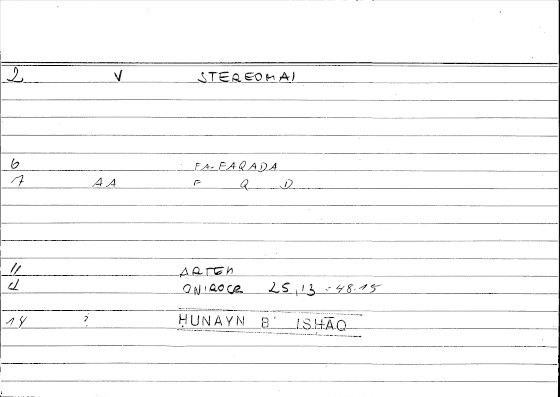 2 V STEREOMAI
6 FA-FAQADA
7 AA F Q D
11 ARTEM
4 ONIROCR 25,13 = 48.15
14 ? ḤUNAYN B' ISḤĀQ